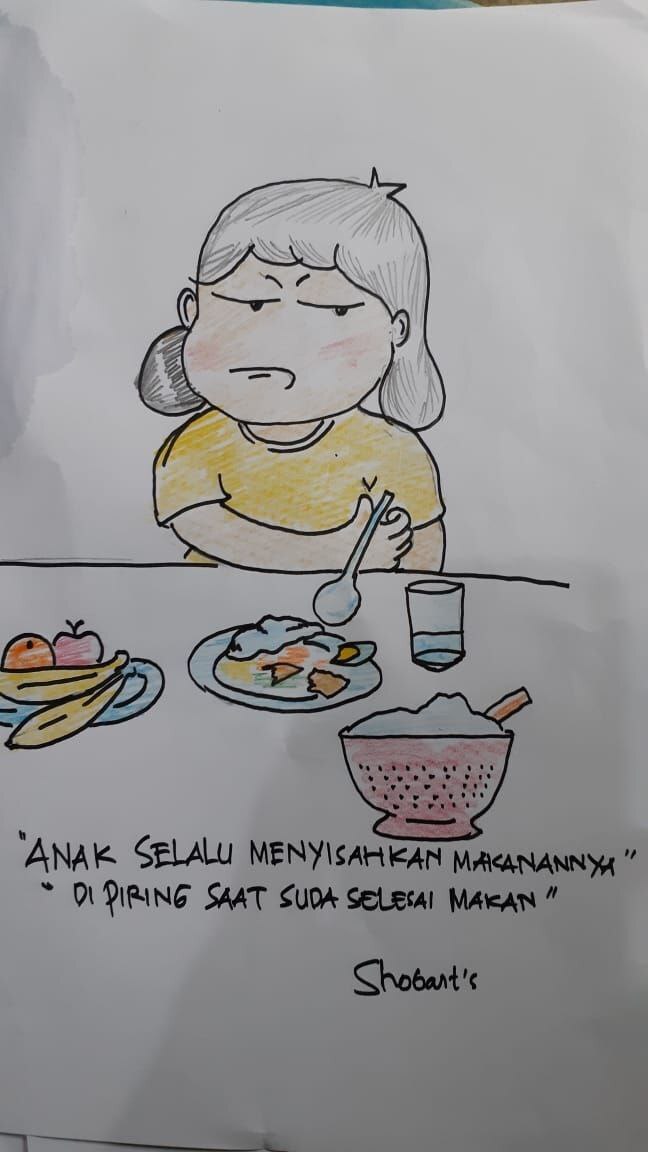 "ANAK SELALU MENYISAHKAN MAKANANNYA"
" DI PIRING SAAT SUDA SELESAI MAKAN "
Shobart's